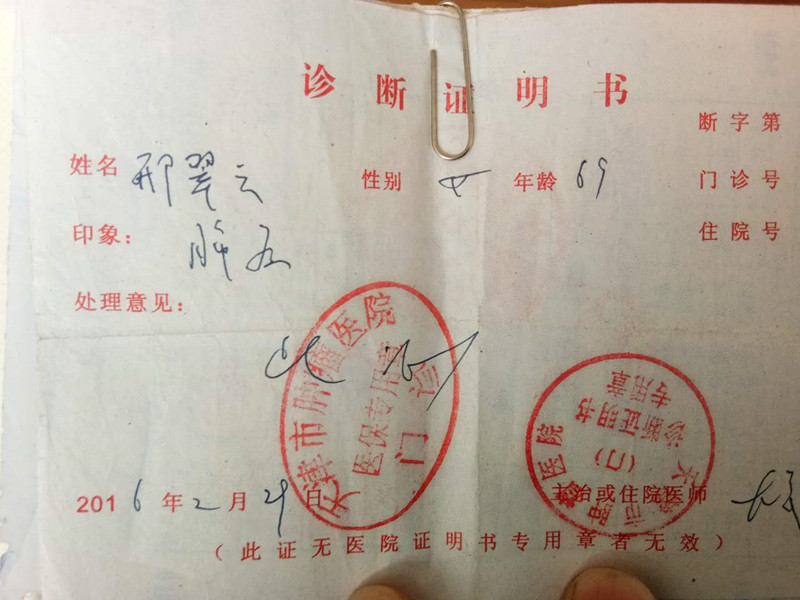 诊断证明书
断字第
姓名 邢翠云 性别 女 年龄 69 门诊号
印象: 肺 住院号
处理意见:
天津市肿瘤医院
医保专用章
门诊
医院
诊断证明书
专用章
(门)
2016年2月29日 主治或住院医师
(此证无医院证明书专用章者无效)